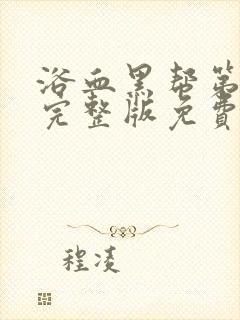 浴血黑帮第
完整版免费
程凌